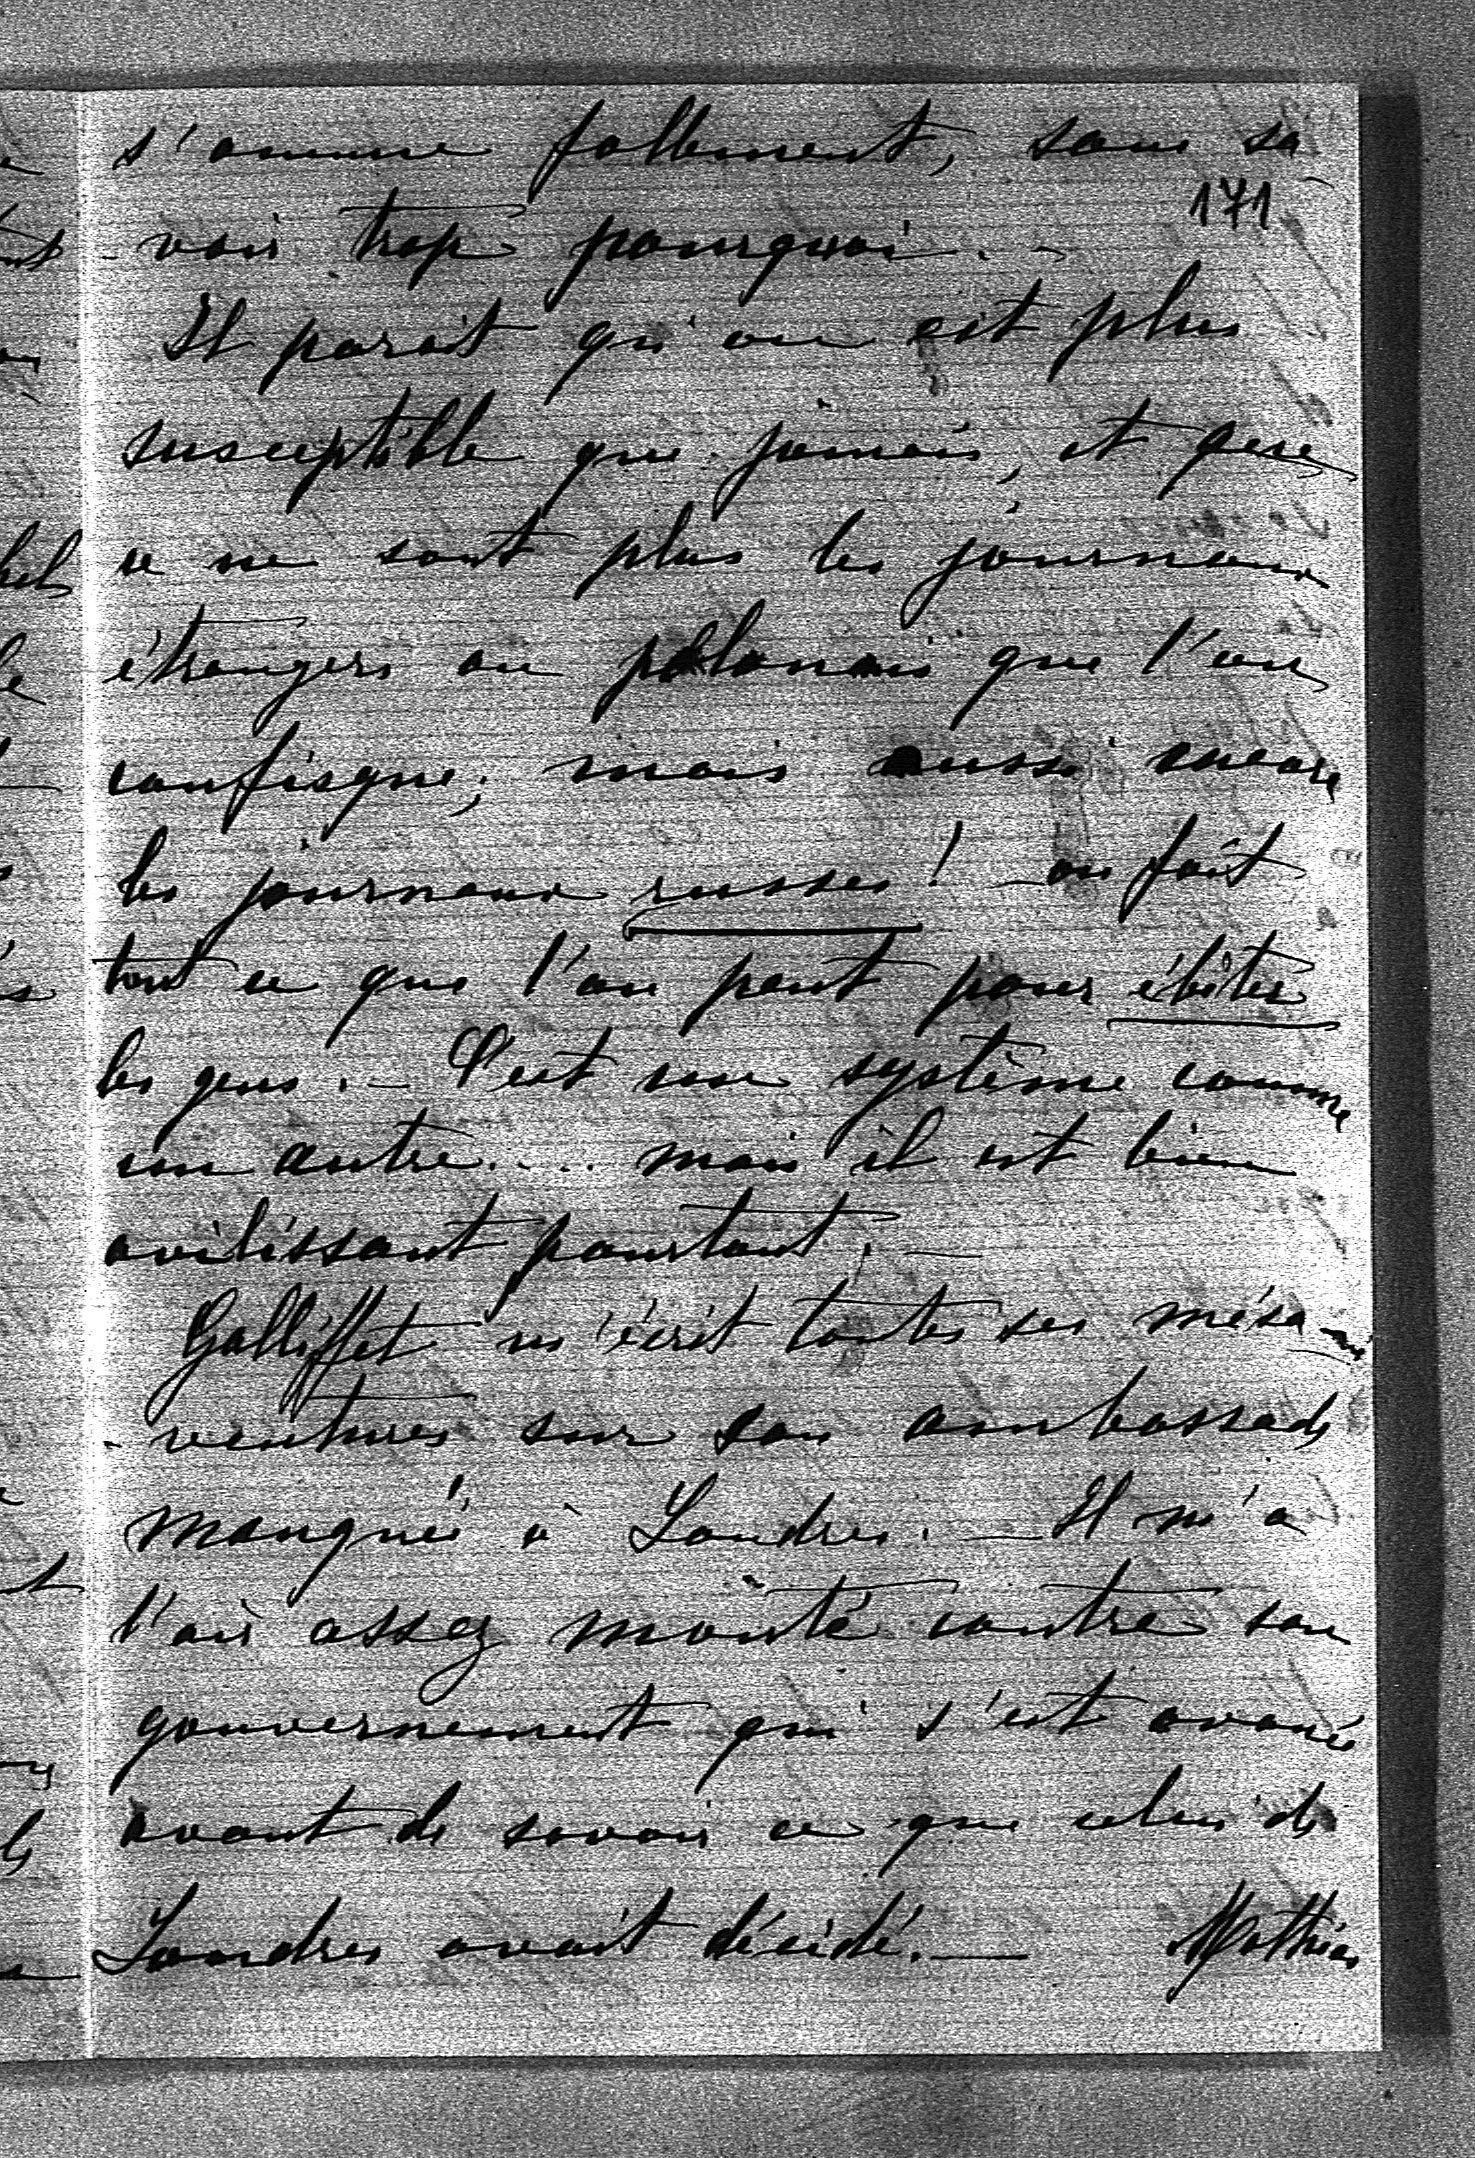 s'amuse follement, sans sa
171
-voir trop pourquoi. -
Il parait qu'on est plus
susceptible que jamais, et que
ce ne sont plus les journaux
étrangers ou polonais que l'on
confisque; mais aussi encore
les journaux russes! - on fait
tout ce que l'on peut pour ébêter
les gens. - C'est un système comme
un autre.... mais il est bien
avilissant pourtant. -
Galliffet m'écrit toutes ses mésa-
-ventures sur son ambassade
manquée à Londres. - Il m'a
l'air assez monté contre son
gouvernement qui s'est avancé
avant de savoir ce que celui de
Londres avait décidé. - Mathias